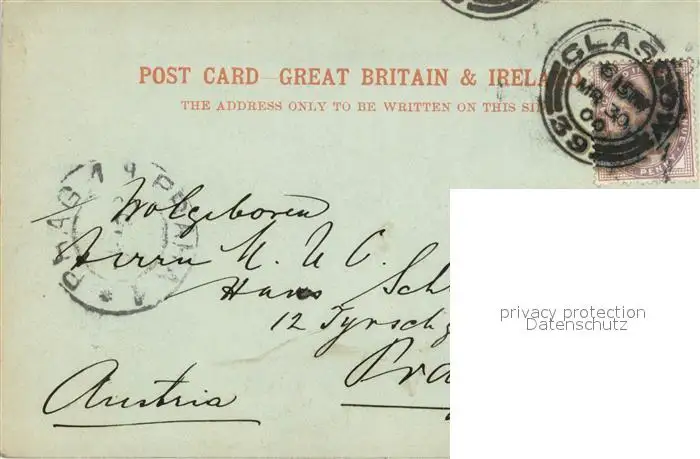 POST CARD GREAT BRITAIN & IRELAND
THE ADDRESS ONLY TO BE WRITTEN ON THIS SI
GLASGOW
MR 30
00
39
PENNY
PRAG PRAHA
Wolgeboren
Herrn M. U C.
Hans Sch
12 Tyrsch
Pra
Austria
privacy protection
Datenschutz